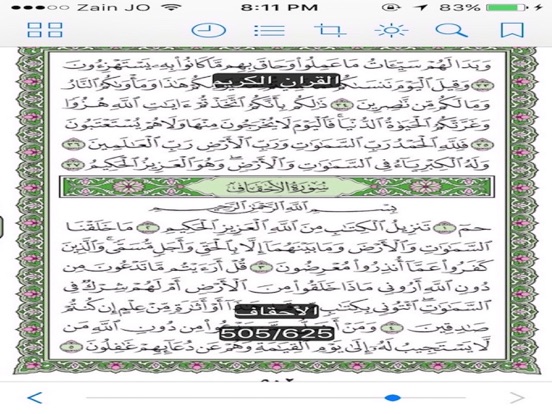 Zain JO 8:11 PM 83%
وَبَدَا لَهُمْ سَيِّئَاتُ مَا عَمِلُوا وَحَاقَ بِهِم مَّا كَانُوا بِهِ يَسْتَهْزِءُونَ
القرآن الكريم
٣٣ وَقِيلَ الْيَوْمَ نَنسَىٰكُمْ هَٰذَا وَمَأْوَىٰكُمُ النَّارُ
وَمَا لَكُم مِّن نَّٰصِرِينَ ٣٤ ذَٰلِكُم بِأَنَّكُمُ اتَّخَذْتُمْ ءَايَٰتِ اللَّهِ هُزُوًا
وَغَرَّتْكُمُ الْحَيَوٰةُ الدُّنْيَا فَالْيَوْمَ لَا يُخْرَجُونَ مِنْهَا وَلَا هُمْ يُسْتَعْتَبُونَ
٣٥ فَلِلَّهِ الْحَمْدُ رَبِّ السَّمَٰوَٰتِ وَرَبِّ الْأَرْضِ رَبِّ الْعَٰلَمِينَ ٣٦
وَلَهُ الْكِبْرِيَاءُ فِي السَّمَٰوَٰتِ وَالْأَرْضِ وَهُوَ الْعَزِيزُ الْحَكِيمُ ٣٧
سُورَةُ الْأَحْقَافِ
بِسْمِ اللَّهِ الرَّحْمَٰنِ الرَّحِيمِ
حمٓ ١ تَنزِيلُ الْكِتَٰبِ مِنَ اللَّهِ الْعَزِيزِ الْحَكِيمِ ٢ مَا خَلَقْنَا
السَّمَٰوَٰتِ وَالْأَرْضَ وَمَا بَيْنَهُمَا إِلَّا بِالْحَقِّ وَأَجَلٍ مُّسَمًّى وَالَّذِينَ
كَفَرُوا عَمَّا أُنذِرُوا مُعْرِضُونَ ٣ قُلْ أَرَءَيْتُم مَّا تَدْعُونَ مِن
دُونِ اللَّهِ أَرُونِي مَاذَا خَلَقُوا مِنَ الْأَرْضِ أَمْ لَهُمْ شِرْكٌ فِي
السَّمَٰوَٰتِ ائْتُونِي بِكِتَٰبٍ أَوْ أَثَٰرَةٍ مِّنْ عِلْمٍ إِن كُنتُمْ
الأحقاف
صَٰدِقِينَ ٤ وَمَنْ مِن دُونِ اللَّهِ مَن
505/625
لَّا يَسْتَجِيبُ لَهُ إِلَىٰ يَوْمِ الْقِيَٰمَةِ وَهُمْ عَن دُعَائِهِمْ غَٰفِلُونَ ٥